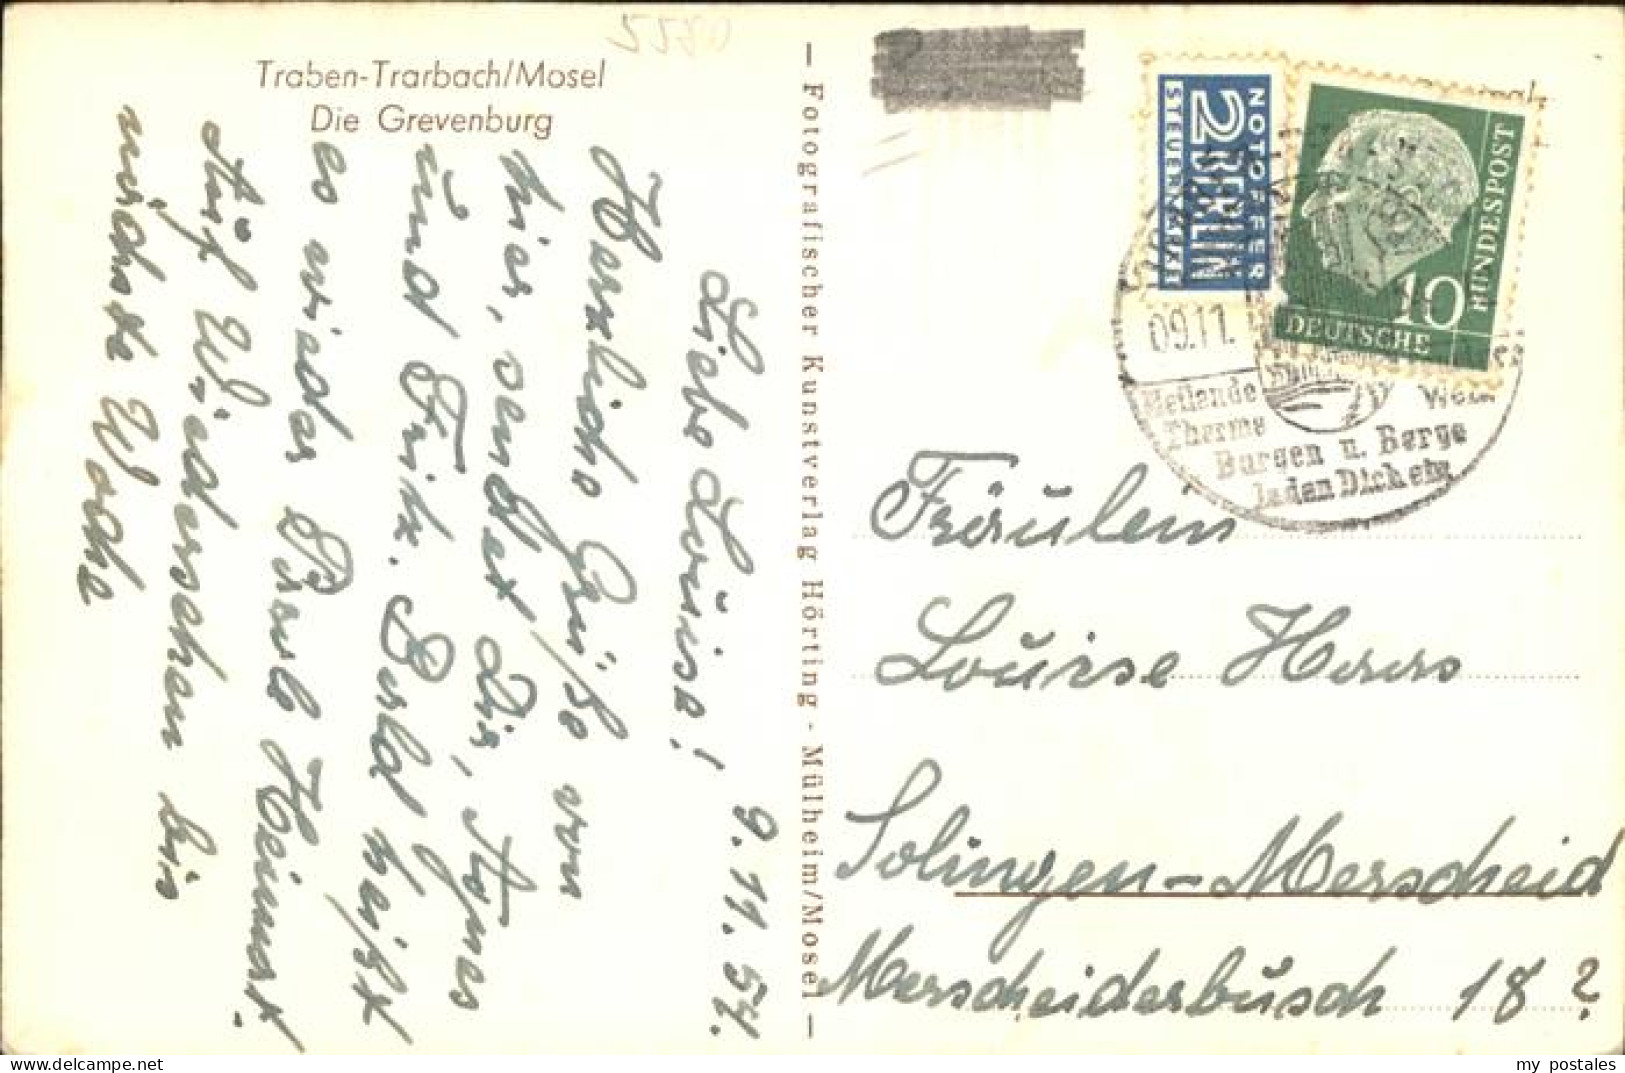 2280
Traben-Trarbach/Mosel
Die Grevenburg
— Fotografischer Kunstverlag Hörting - Mülheim/Mosel —
9.11.54.
Liebe Louise!
Herzliche Grüße von
hier, sendet Dir, Agnes
und Fritz. Bald heißt
es wieder Perle Heimat.
Auf Wiedersehen bis
nächste Woche
NOTOPFER
2 BERLIN
STEUERMARKE
10
DEUTSCHE
BUNDESPOST
09.11.
Therme
Burgen u. Berge
laden Dich ein
Fräulein
Louise Haas
Solingen-Merscheid
Merscheiderbusch 18?
my postales